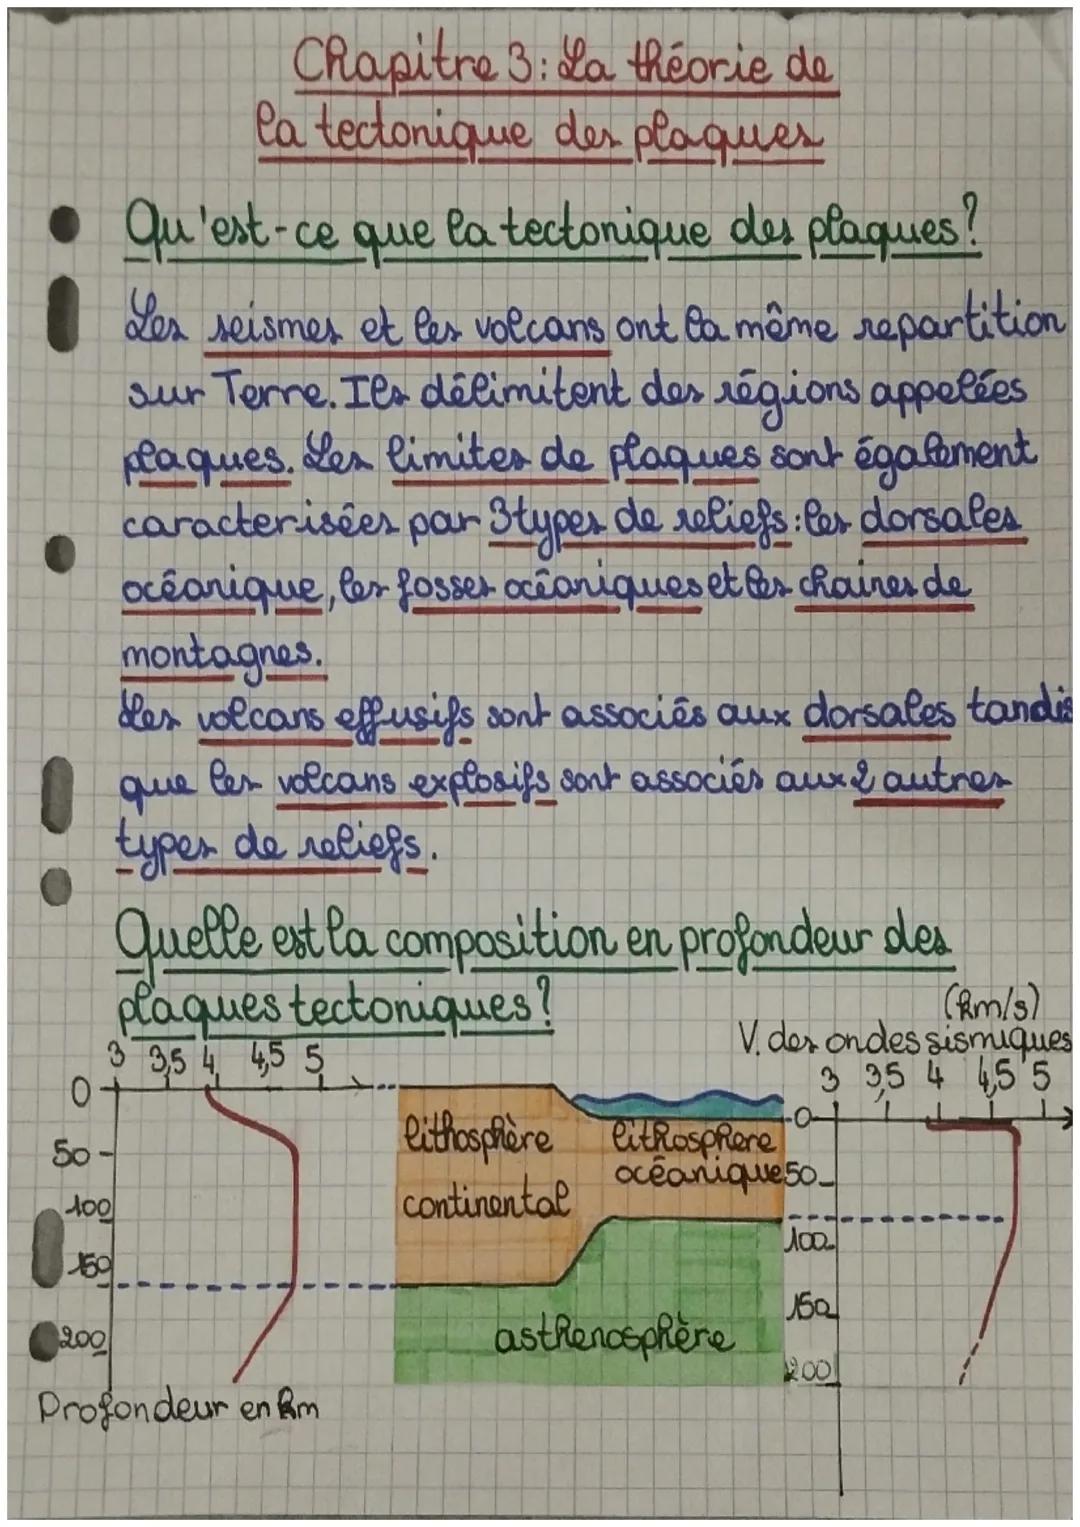 Chapitre 3: La théorie de
la tectonique des plaques
Qu'est-ce que la tectonique des plaques?
Les seismes et les volcans ont la même repartition
sur Terre. Ils délimitent des régions appelées
plaques. Les limites de plaques sont également
caracterisées par 3 types de reliefs: les dorsales
océanique, les fosses océaniques et les chaines de
montagnes.
Les volcans effusifs sont associés aux dorsales tandis
que les volcans explosifs sont associés aux 2 autres
types de reliefs.
Quelle est la composition en profondeur des
plaques tectoniques?
(km/s)
V. des ondes sismiques
3 3,5 4 4,5 5
3 3,5 4 4,5 5
0
50
100
150
200
Profondeur en km
lithosphère
continental
lithosphere
océanique
asthenosphère
0
50
100
150
200